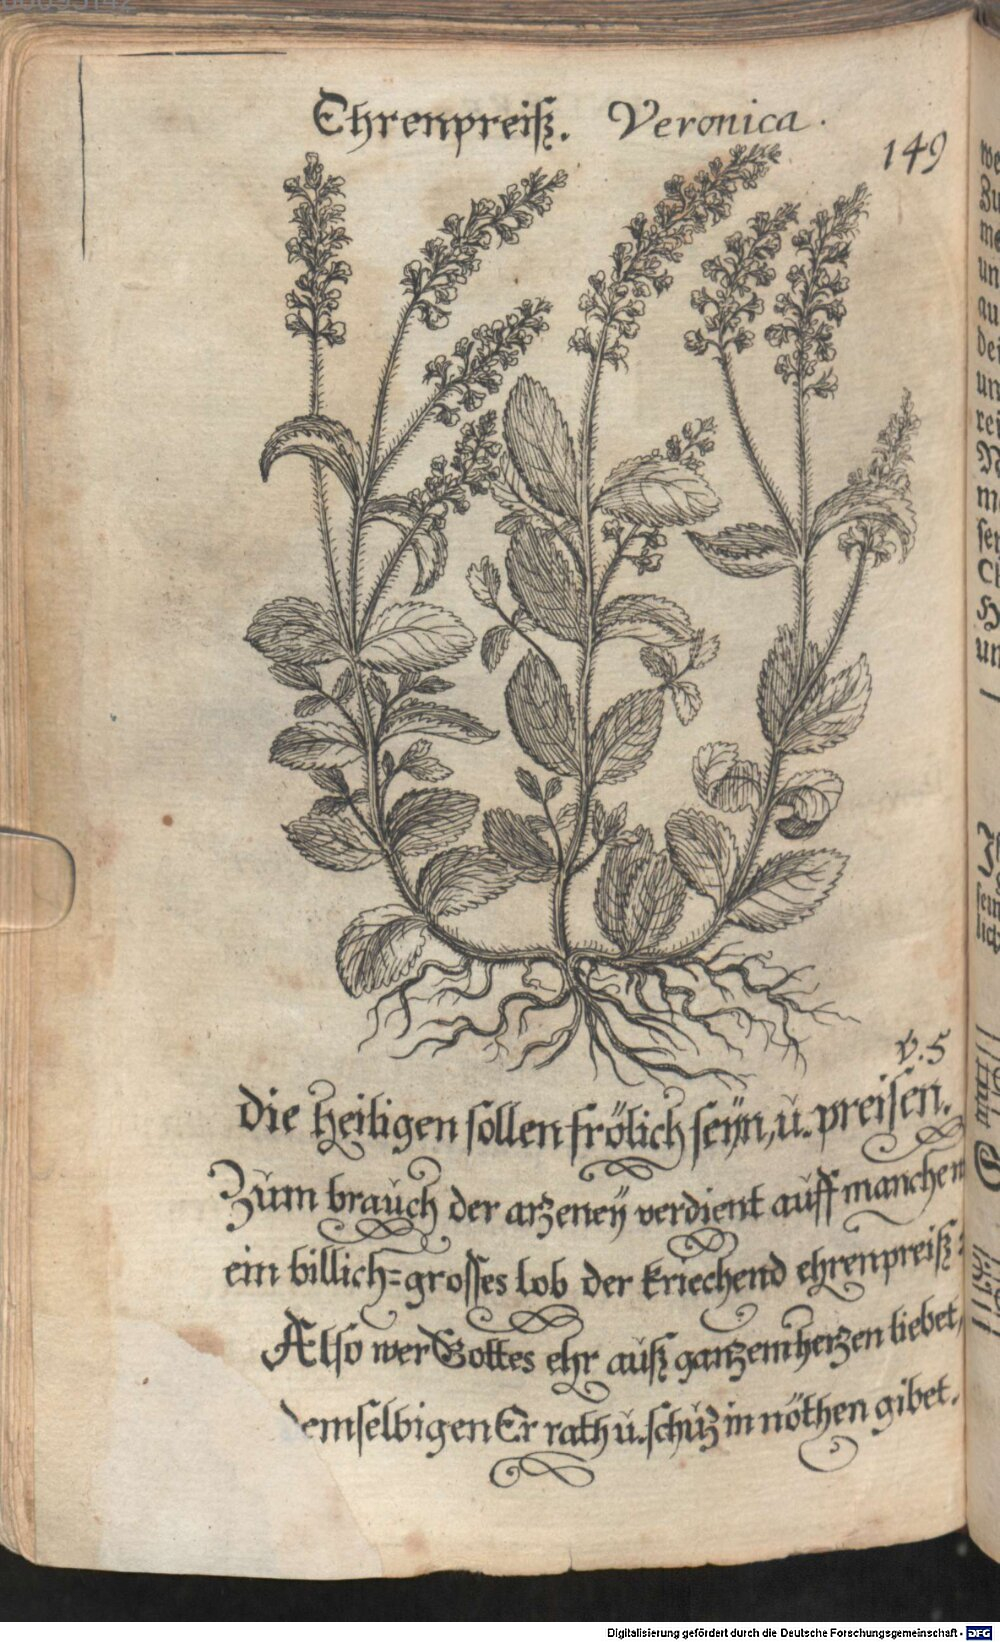 Ehrenpreiß. Veronica.
149
v. 5
die heiligen sollen frölich seÿn, ŭ. preisen.
Zŭm braŭch der arzeneÿ verdient aŭff manchen
ein billich=grosses lob der kriechend ehrenpreiß:
Also wer Gottes ehr aŭß ganzem herzen liebet,
demselbigen Er rath ŭ. schŭz in nöthen gibet.
Digitalisierung gefördert durch die Deutsche Forschungsgemeinschaft - DFG